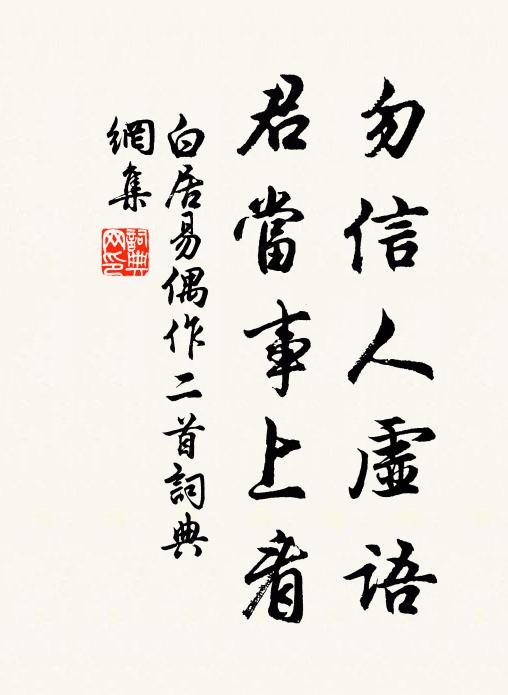 勿信人虛語
君當事上看
白居易偶作二首詞典
網集
詞典網印